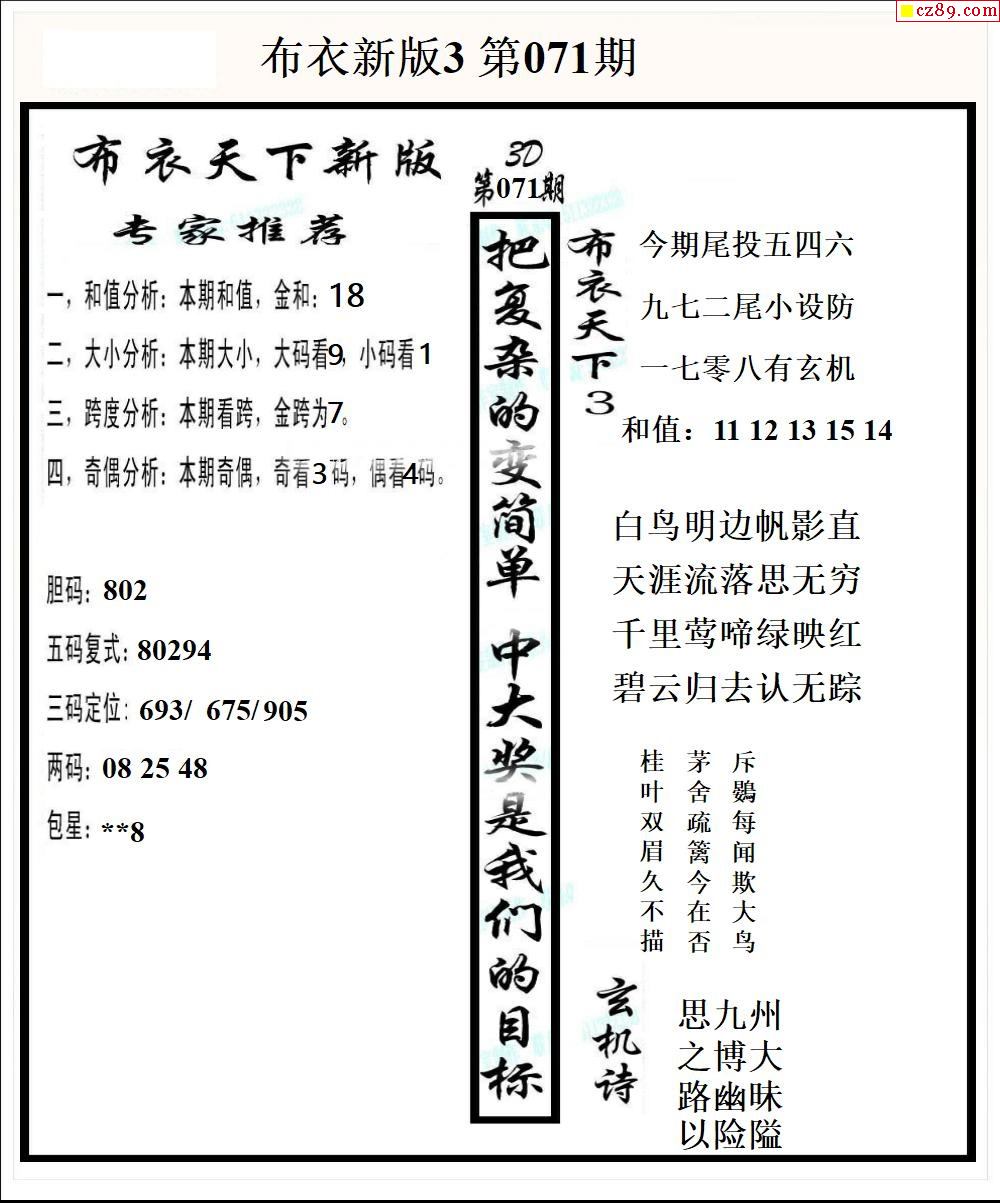 cz89.com
布衣新版3 第071期
布衣天下新版
专家推荐
一，和值分析：本期和值，金和：18
二，大小分析：本期大小，大码看9，小码看1
三，跨度分析：本期看跨，金跨为7。
四，奇偶分析：本期奇偶，奇看3码，偶看4码。
胆码：802
五码复式：80294
三码定位：693/ 675/ 905
两码：08 25 48
包星：**8
3D
第071期
把复杂的变简单 中大奖是我们的目标
布衣天下3
今期尾投五四六
九七二尾小设防
一七零八有玄机
和值：11 12 13 15 14
白鸟明边帆影直
天涯流落思无穷
千里莺啼绿映红
碧云归去认无踪
桂叶双眉久不描
茅舍疏篱今在否
斥鷃每闻欺大鸟
玄机诗
思九州
之博大
路幽昧
以险隘